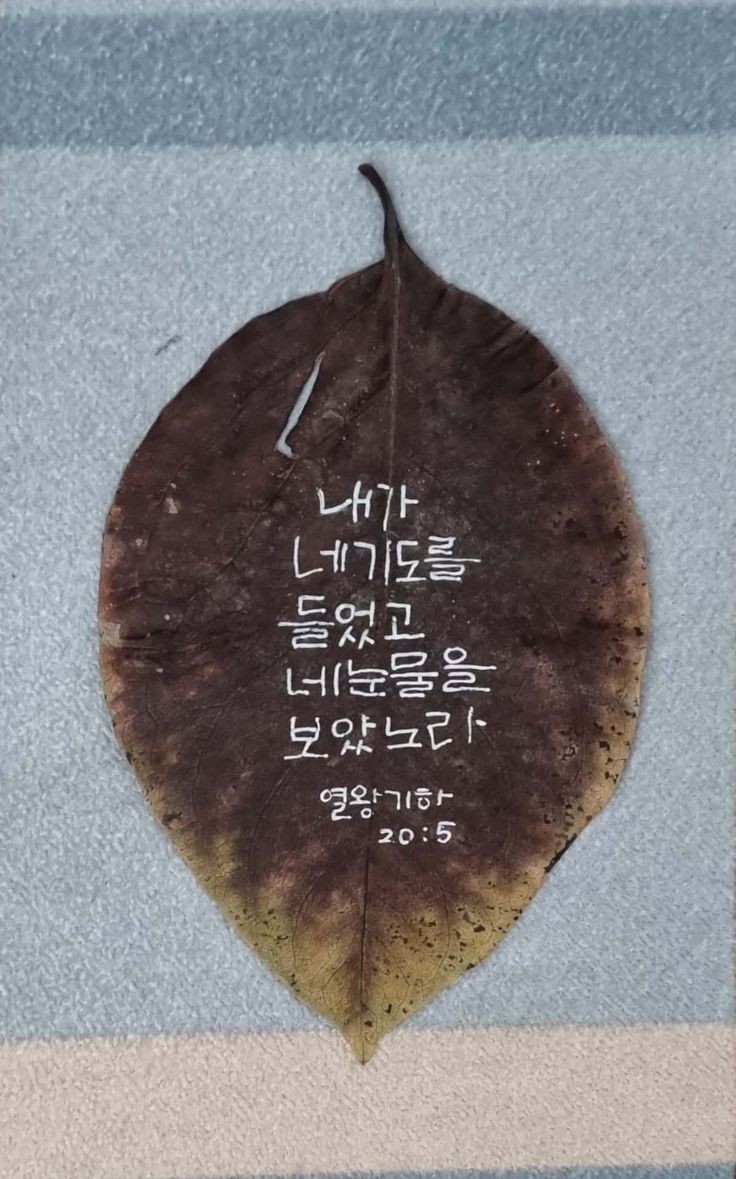 내가
네 기도를
들었고
네 눈물을
보았노라
열왕기하
20:5